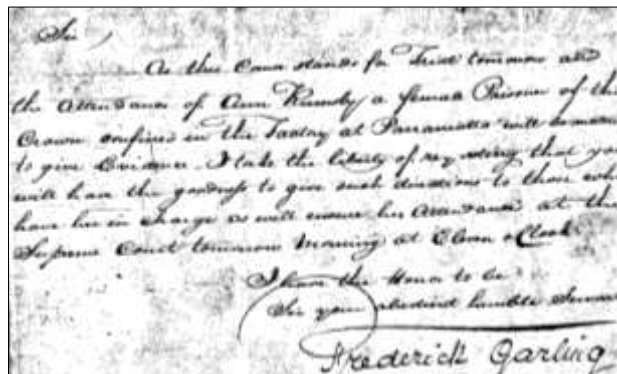 Sir,
As this Cause stands for Trial tomorrow and
the attendance of Ann Rumsby a female Prisoner of the
Crown confined in the Factory at Parramatta will be
to give Evidence. I take the liberty of requesting that you
will have the goodness to give such directions to those who
have her in charge as will ensure her attendance at the
Supreme Court tomorrow Morning at Eleven o Clock
I have the Honor to be
Sir your obedient humble Servant
Frederick Garling